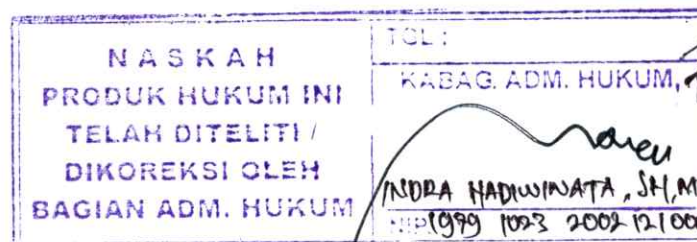 NASKAH
PRODUK HUKUM INI
TELAH DITELITI /
DIKOREKSI OLEH
BAGIAN ADM. HUKUM
TGL :
KABAG. ADM. HUKUM,
INDRA HADIWINATA, SH, M
NIP 1979 1023 2002 12 1 00